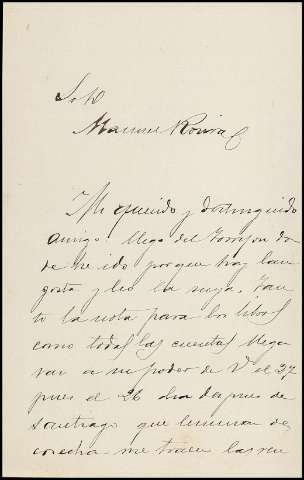 S. D.
Manuel Rovira
Mi querido y distinguido
amigo llego del Torrejon don
de he ido porque hay lan
gosta y leo la suya. Tan
to la nota para los libros
como todas las cuentas llega
ran a su poder de V el 27
pues el 26 dia despues de
Santiago que terminan de
cosecha me traen las